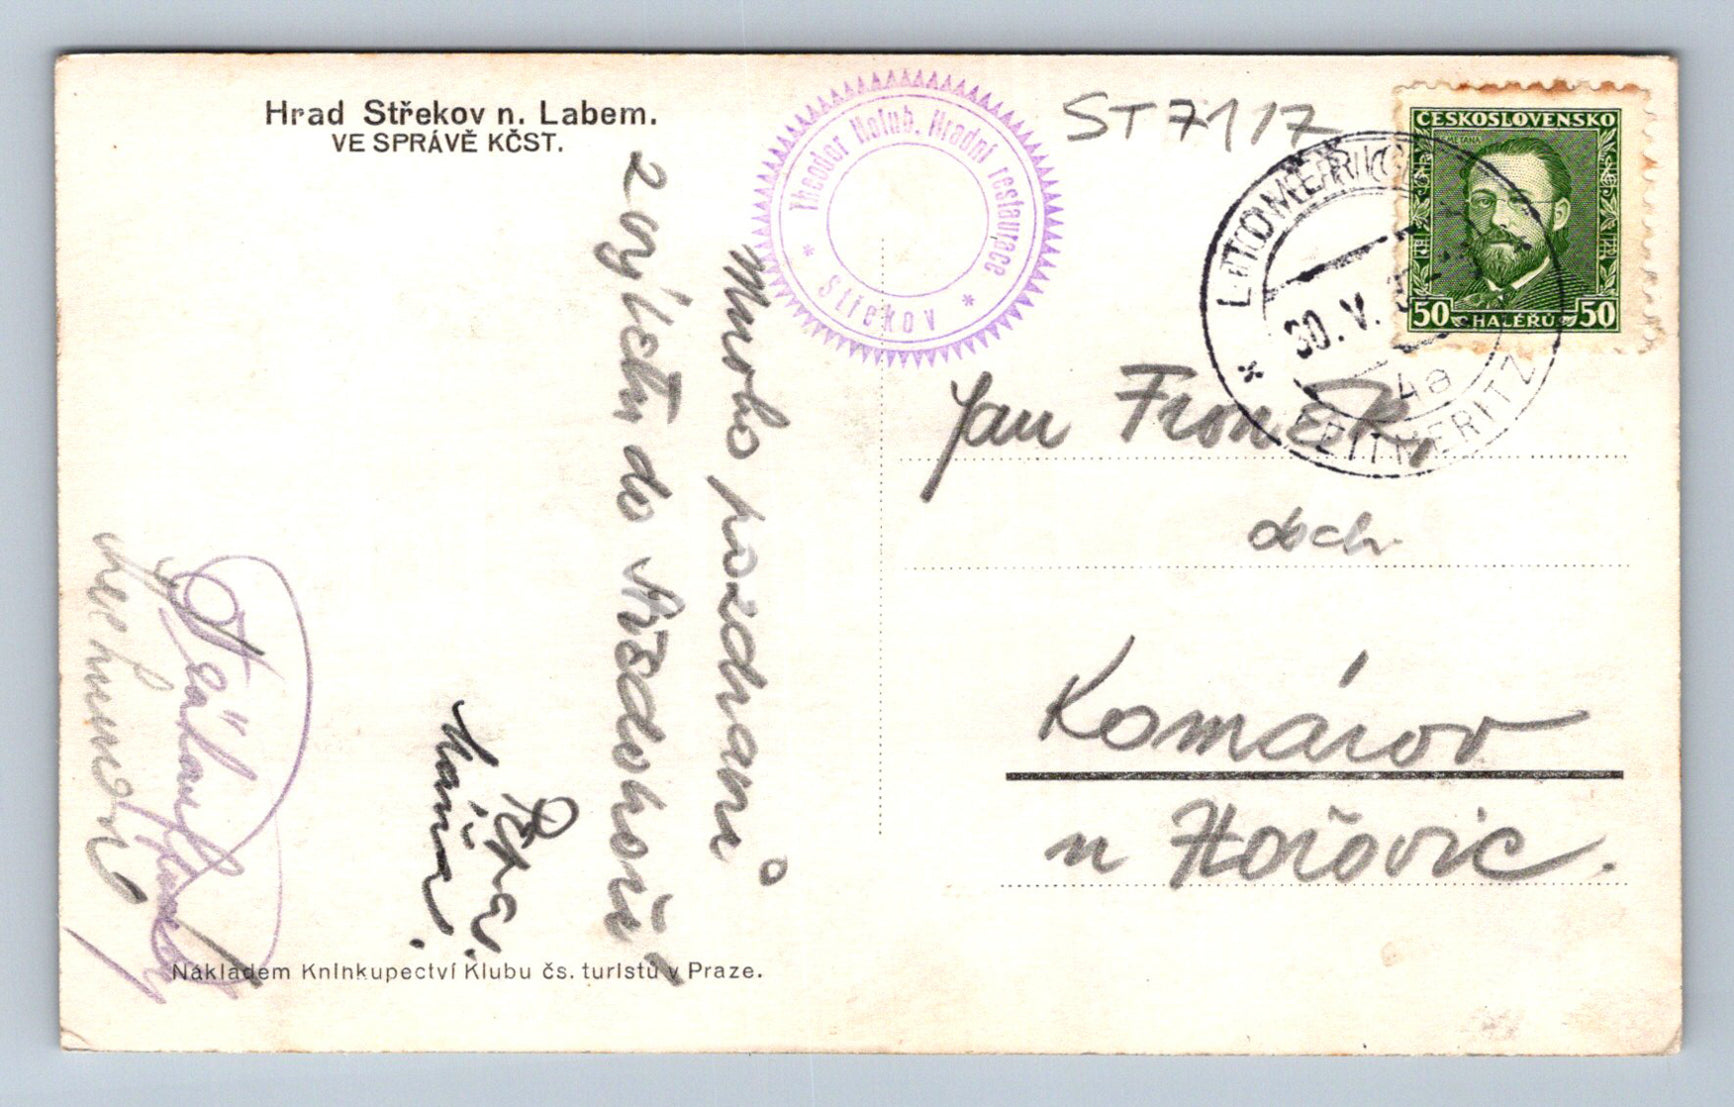 Hrad Střekov n. Labem.
VE SPRÁVĚ KČST.
Theodor Holub, Hradní restaurace
* Střekov *
ST 7117
ČESKOSLOVENSKO
50 HALÉŘŮ 50
LITOMĚŘICE
30. V.
4a
* LEITMERITZ
Mnoho pozdravů
z výletu do Středohoří
Jan Froněk,
Komárov
u Hořovic.
Nákladem Knihkupectví Klubu čs. turistů v Praze.